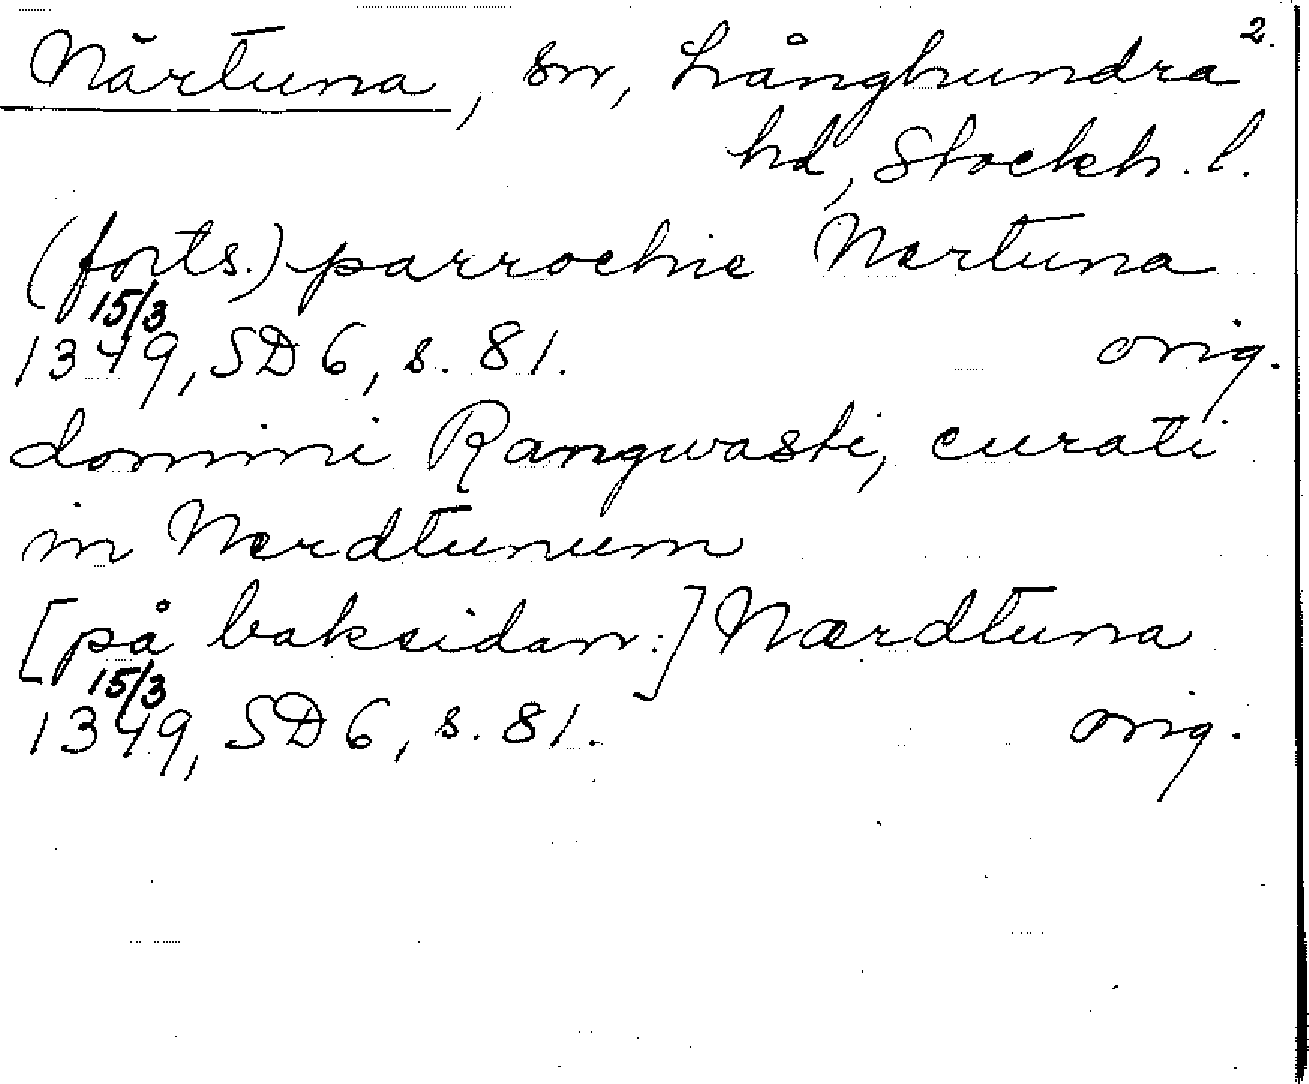 2.
Närtuna, sn, Långhundra
hd, Stockh. l.
(forts.) parrochie Nærtuna
15/3
1349, SD 6, s. 81. orig.
domini Rangwasti, curati
in Nærdtunum
[på baksidan:] Nærdtuna
15/3
1349, SD 6, s. 81. orig.